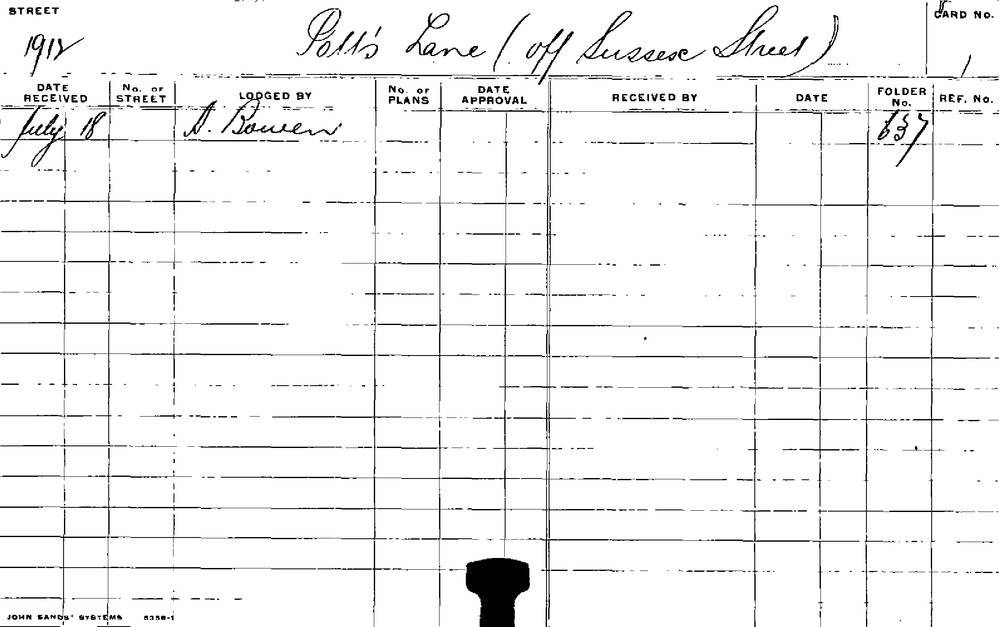 STREET
Pott's Lane (off Sussex Street)
CARD No.
1912
1
DATE RECEIVED No. of STREET LODGED BY No. of PLANS DATE APPROVAL RECEIVED BY DATE FOLDER No. REF. No.
July 18 A. Bowen 637
JOHN SANDS' SYSTEMS 5358-1